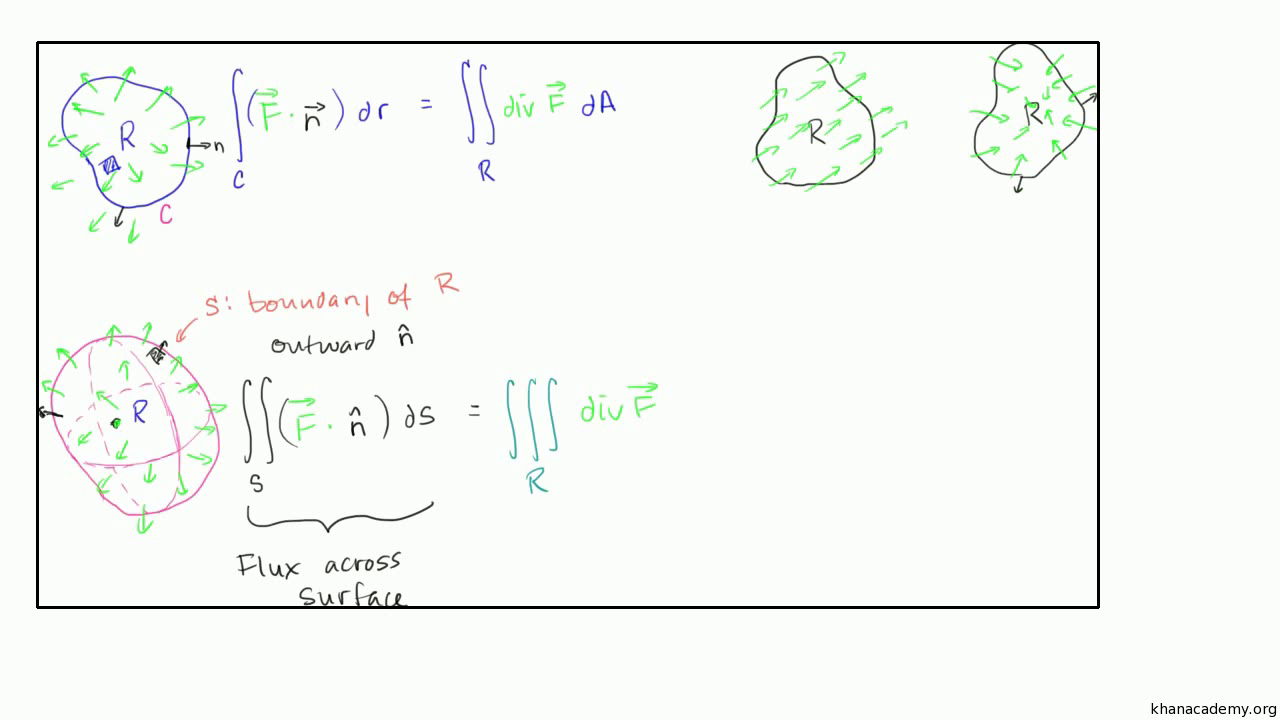 R
n
C
∫ (F⃗ · n⃗) dr = ∬ div F⃗ dA
C R
R
R
S: boundary of R
outward n̂
R
∬ (F⃗ · n̂) ds = ∭ div F⃗
S R
Flux across
surface
khanacademy.org